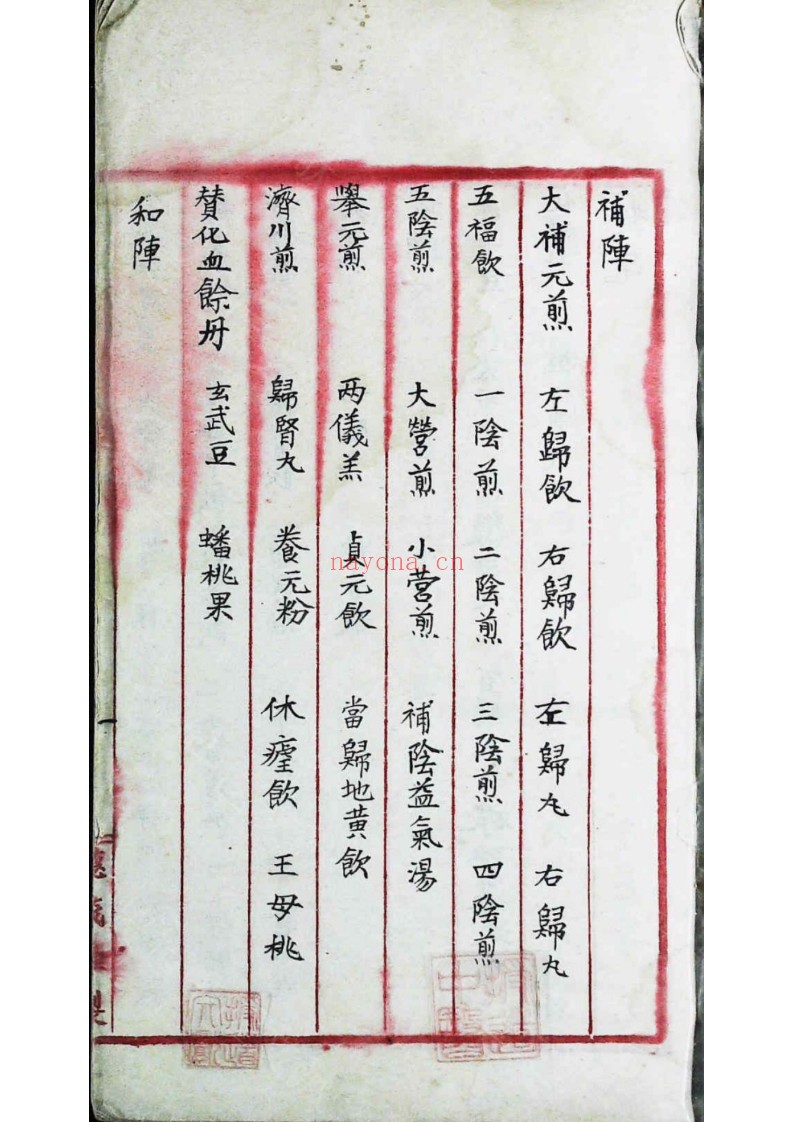 補陣
大補元煎 左歸飲 右歸飲 左歸丸 右歸丸
五福飲 一陰煎 二陰煎 三陰煎 四陰煎
五陰煎 大營煎 小营煎 補陰益氣湯
舉元煎 两儀羔 貞元飲 當歸地黄飲
濟川煎 歸腎丸 養元粉 休瘧飲 王母桃
贊化血餘丹 玄武豆 蟠桃果
和陣
nayona.cn